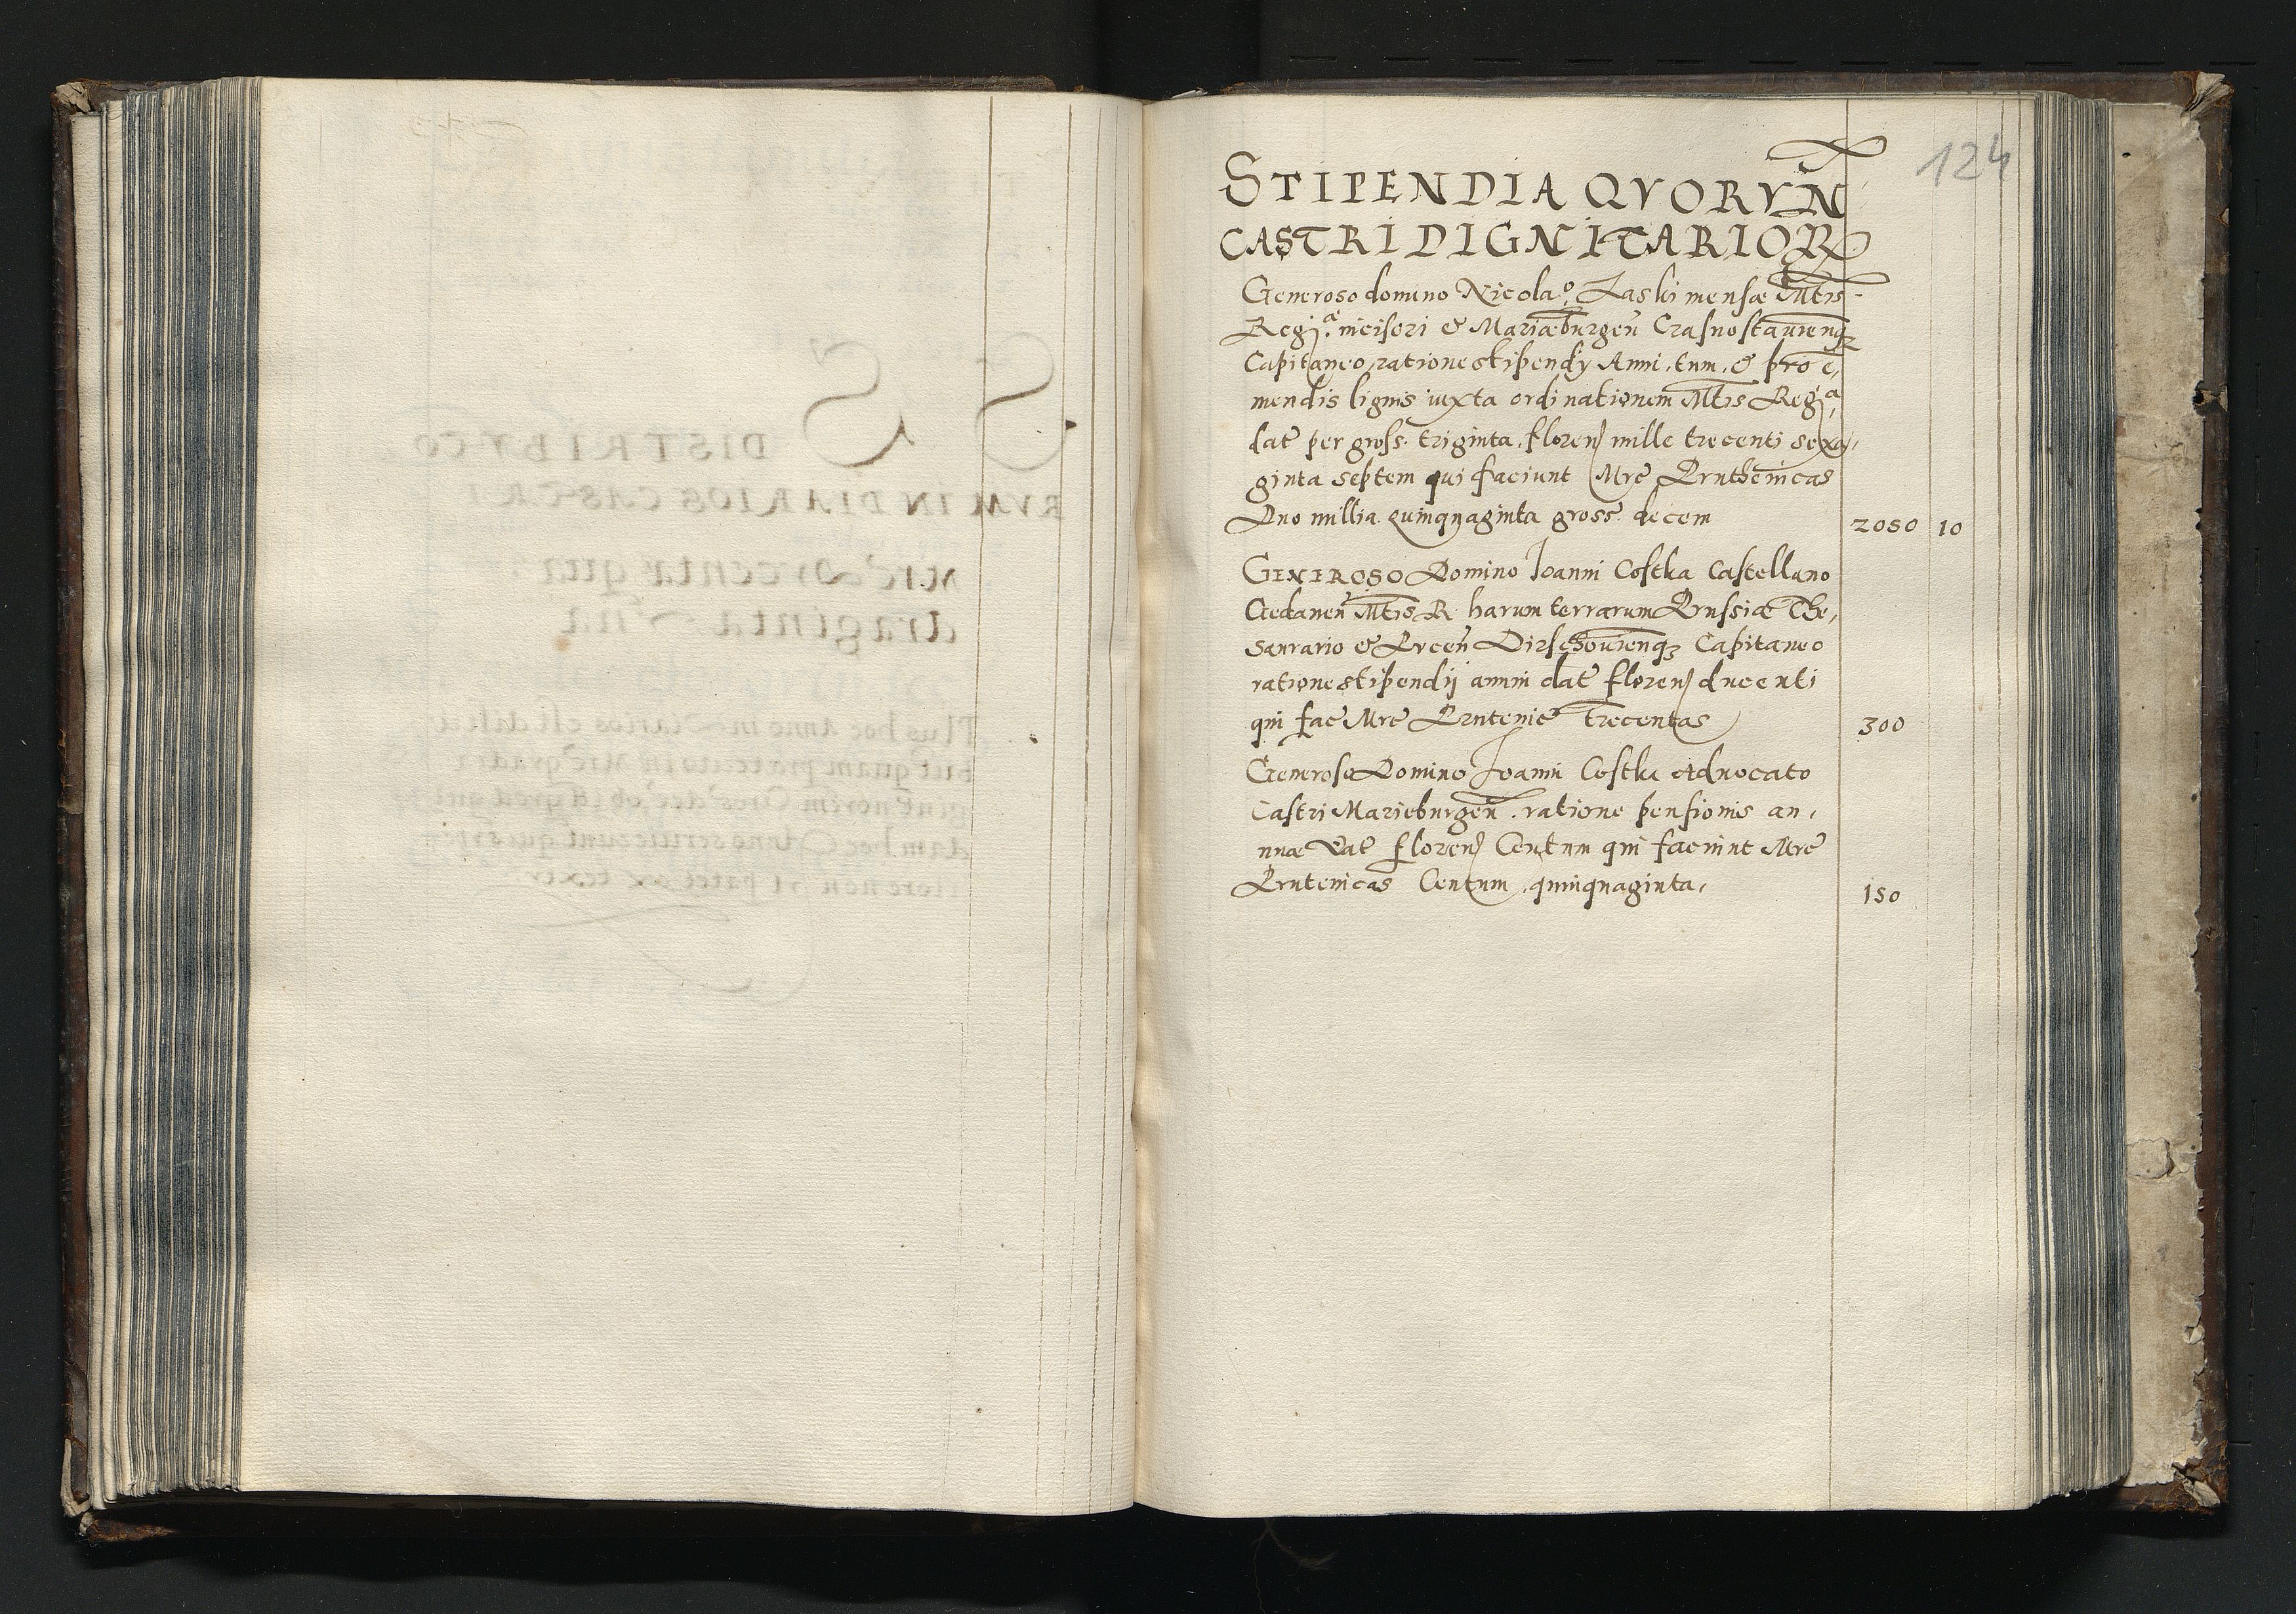 124
STIPENDIA QVORVN̄
CASTRI DIGNITARIOR
Generoso domino Nicolaº Laski mensæ Mtis
Regiᵃ. incisori & Mariæburgeñ Crasnostauienq₃
Capitaneo ratione stipendy Anni, tum, & pro e,
mendis lignis iuxta ordinationem Mtis Regᵃ,
dat per gross. triginta, floren mille trecenti sexa,
ginta septem qui faciunt Mrc Pruthenicas
Duo millia quinquaginta gross. decem 2050 10
GENEROSO Domino Ioanni Costka Castellano
Gedaneñ Mtis R. harum terrarum Prussiæ The,
saurario & Puceñ Dirschouienq₃ Capitaneo
ratione stipendij annui dat floren ducenti
qui fac Mrc Prutenic trecentas 300
Generoso Domino Ioanni Costka Aduocato
Castri Marieburgeñ. ratione pensionis an,
nuæ Dat floren Centum qui faciunt Mrc
Prutenicas Centum quinquaginta, 150